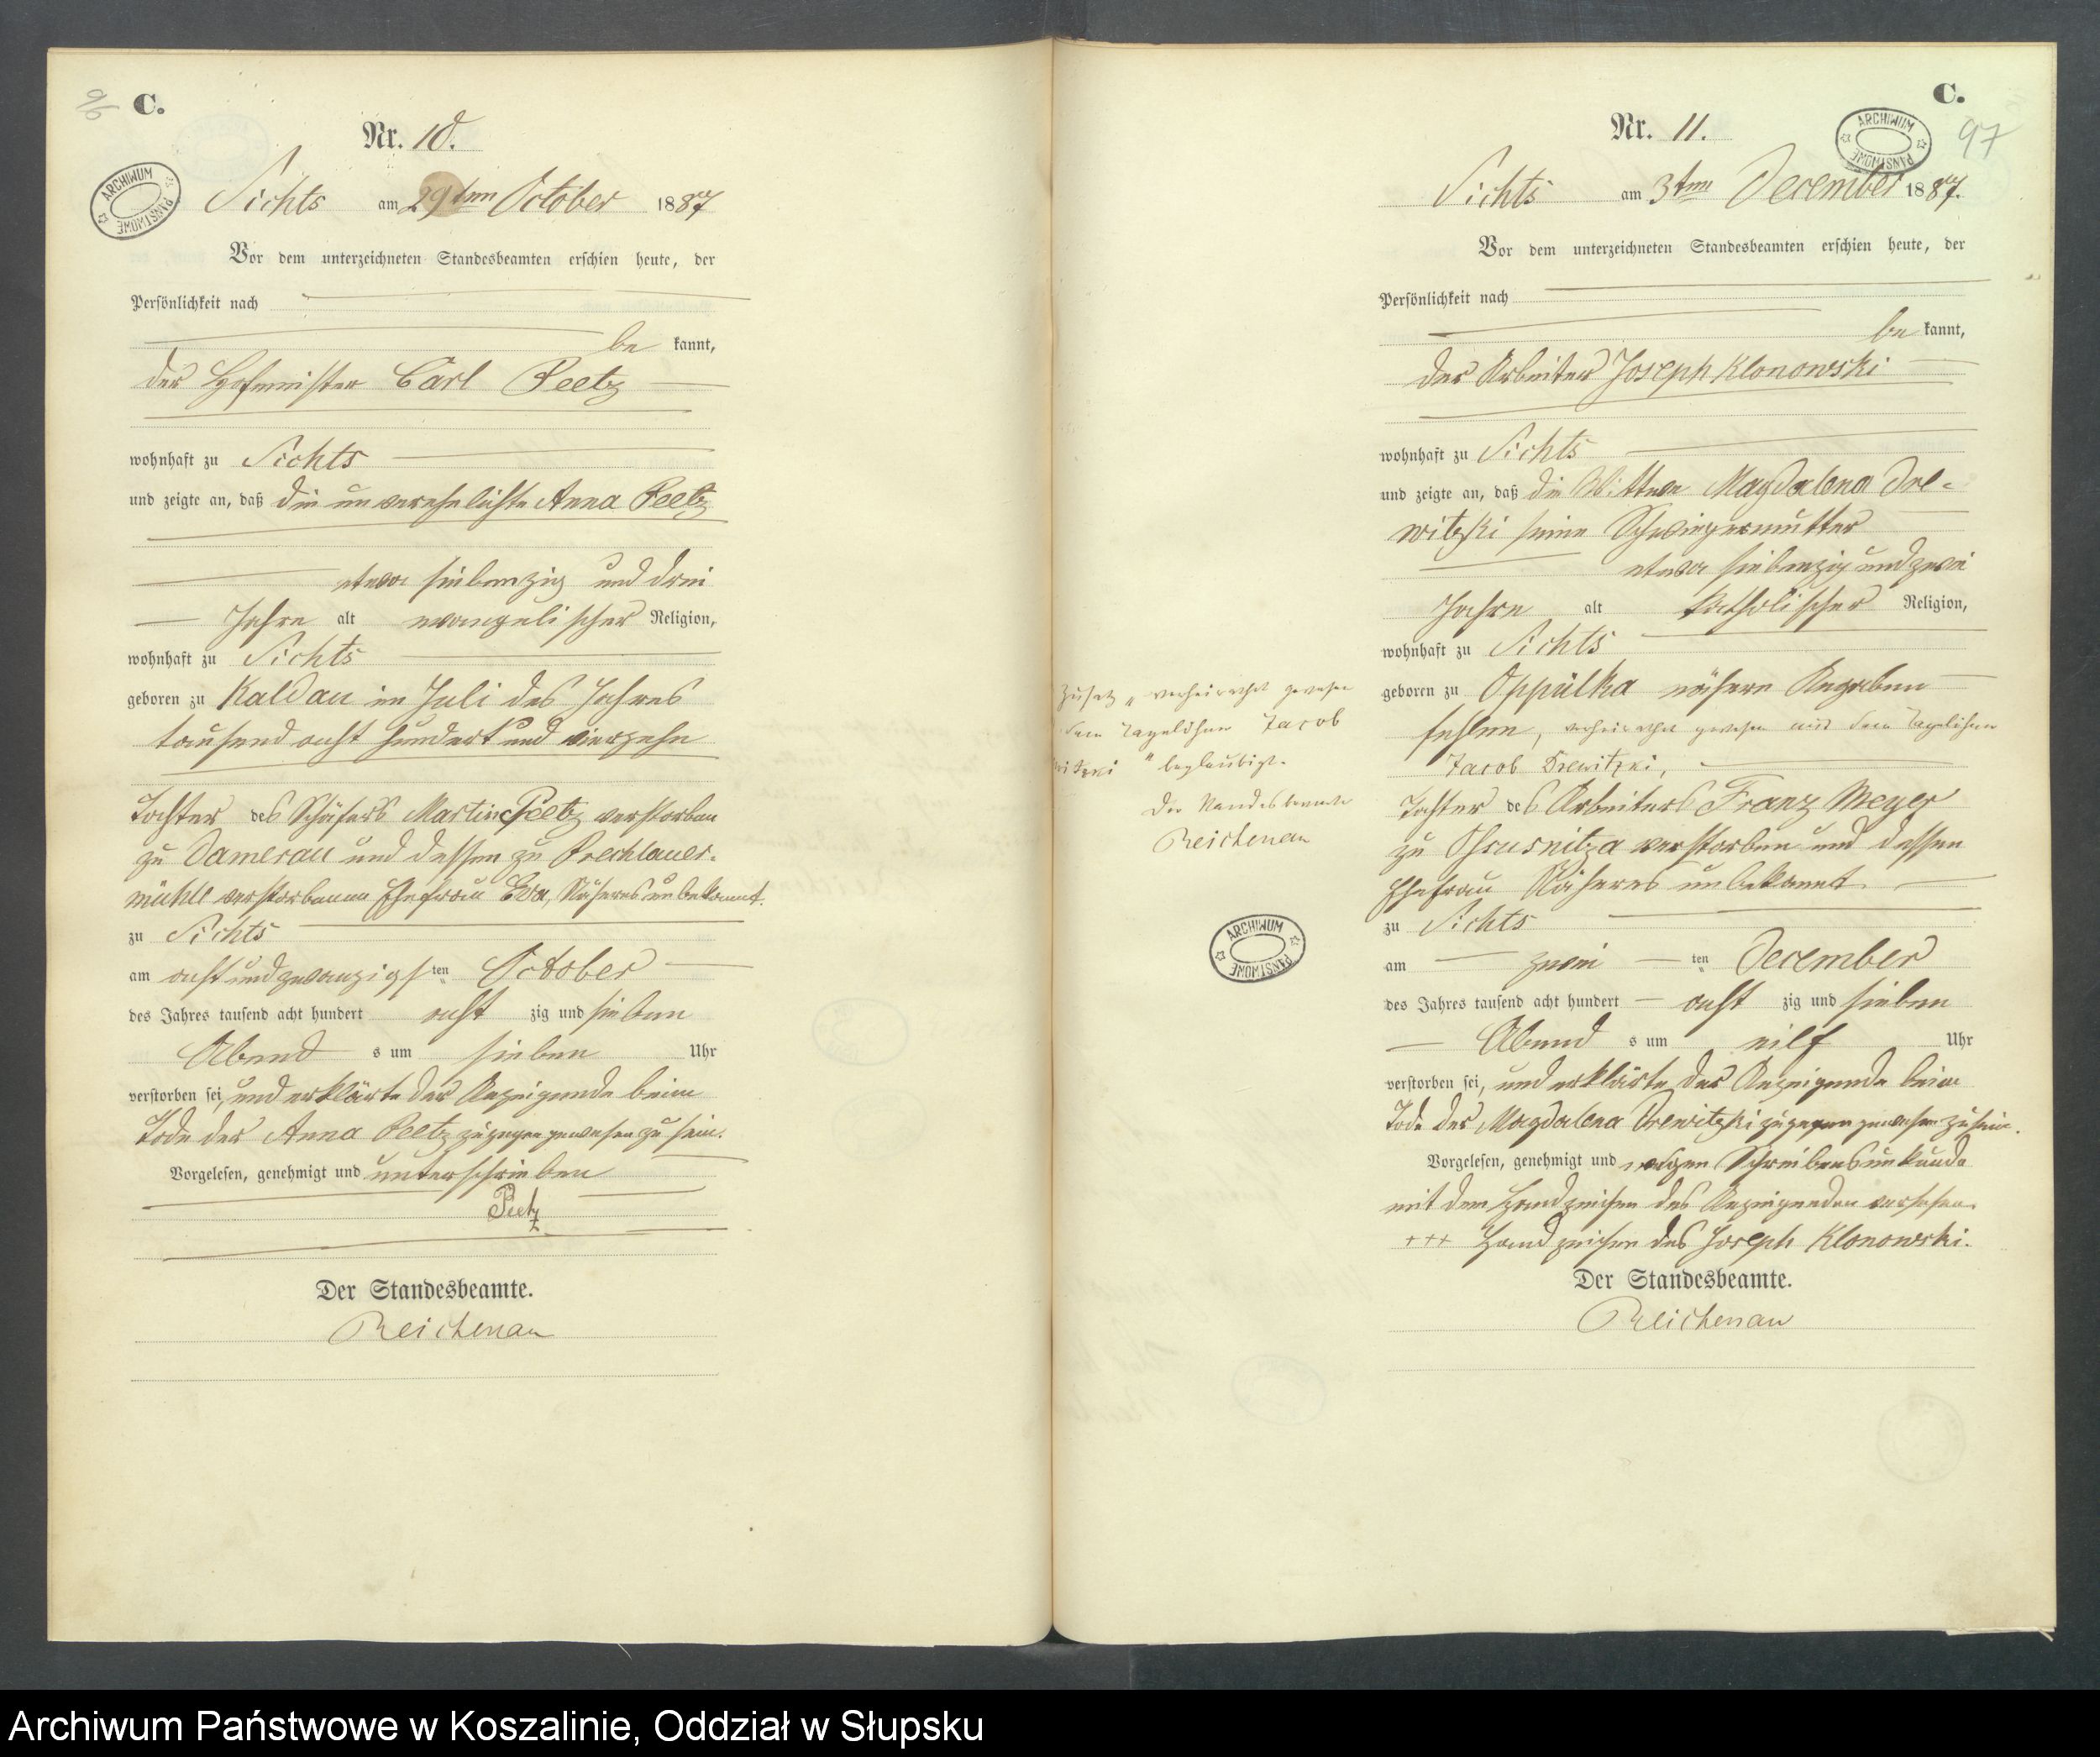 96
C.
Nr. 10.
ARCHIWUM PAŃSTWOWE
Sichts am 29ten October 1887
Vor dem unterzeichneten Standesbeamten erschien heute, der
Persönlichkeit nach
be kannt,
der Hofmeister Carl Peetz
wohnhaft zu Sichts
und zeigte an, daß die unverehelichte Anna Peetz
etwa siebenzig und drei
Jahre alt evangelischer Religion,
wohnhaft zu Sichts
geboren zu Kaldau im Juli des Jahres
tausend acht hundert und vierzehn
Tochter des Schäfers Martin Peetz verstorben
zu Damerau und dessen zu Prechlauer-
mühle verstorbenen Ehefrau Eva, Näheres unbekannt.
zu Sichts
am acht und zwanzigsten October
des Jahres tausend acht hundert acht zig und sieben
Abend s um sieben Uhr
verstorben sei, und erklärte der Anzeigende beim
Tode der Anna Peetz zugegen gewesen zu sein.
Vorgelesen, genehmigt und unterschrieben
Peetz
Der Standesbeamte.
Reichenau
C.
97
Nr. 11.
ARCHIWUM PAŃSTWOWE
Sichts am 3ten December 1887.
Vor dem unterzeichneten Standesbeamten erschien heute, der
Persönlichkeit nach
be kannt,
der Arbeiter Joseph Klonowski
wohnhaft zu Sichts
und zeigte an, daß die Wittwe Magdalena Dre-
witzki seine Schwiegermutter
etwa siebenzig und zwei
Jahre alt katholischer Religion,
wohnhaft zu Sichts
geboren zu Oppulka nähere Angaben
fehlen, verheirathet gewesen mit dem Tagelöhner
Jacob Drewitzki,
Tochter des Arbeiters Franz Meyer
zu verstorben und dessen
Ehefrau Näheres unbekannt.
zu Sichts
am zwei ten December
des Jahres tausend acht hundert acht zig und sieben
Abend s um eilf Uhr
verstorben sei, und erklärte der Anzeigende beim
Tode der Magdalena Drewitzki zugegen gewesen zu sein.
Vorgelesen, genehmigt und wegen Schreibensunkunde
mit dem Handzeichen des Anzeigenden versehen.
+++ Handzeichen des Joseph Klonowski.
Der Standesbeamte.
Reichenau
Zusatz „verheirathet gewesen
dem Tagelöhner Jacob
witzki" beglaubigt.
Der Standesbeamte
Reichenau
ARCHIWUM PAŃSTWOWE
Archiwum Państwowe w Koszalinie, Oddział w Słupsku